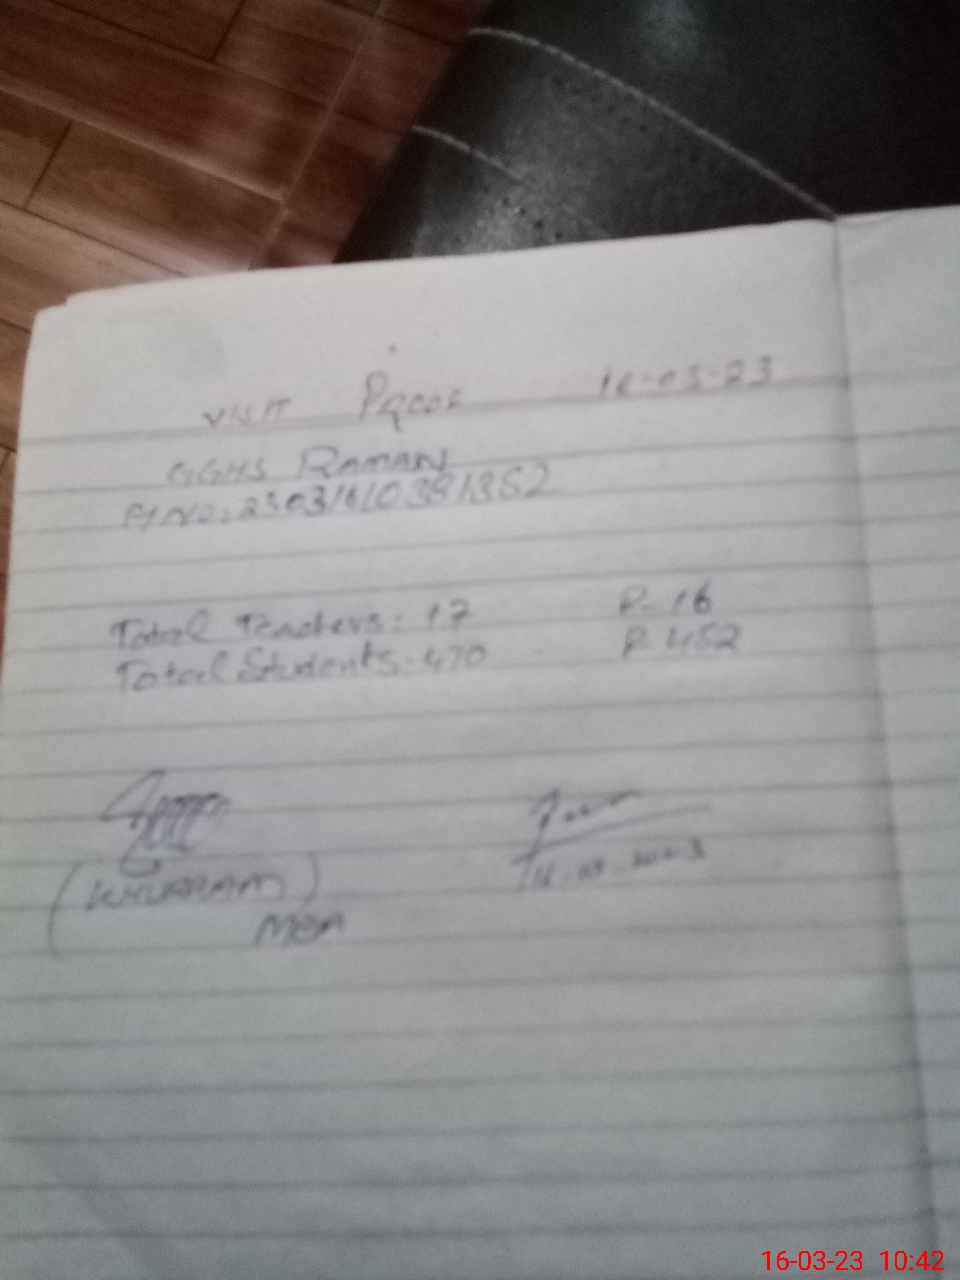 VISIT Proof 16-03-23
GGHS RAMAN
Total Teachers: 17 P-16
Total Students: 470 P-452
(KHURRAM)
MEA
16-03-2023
16-03-23 10:42